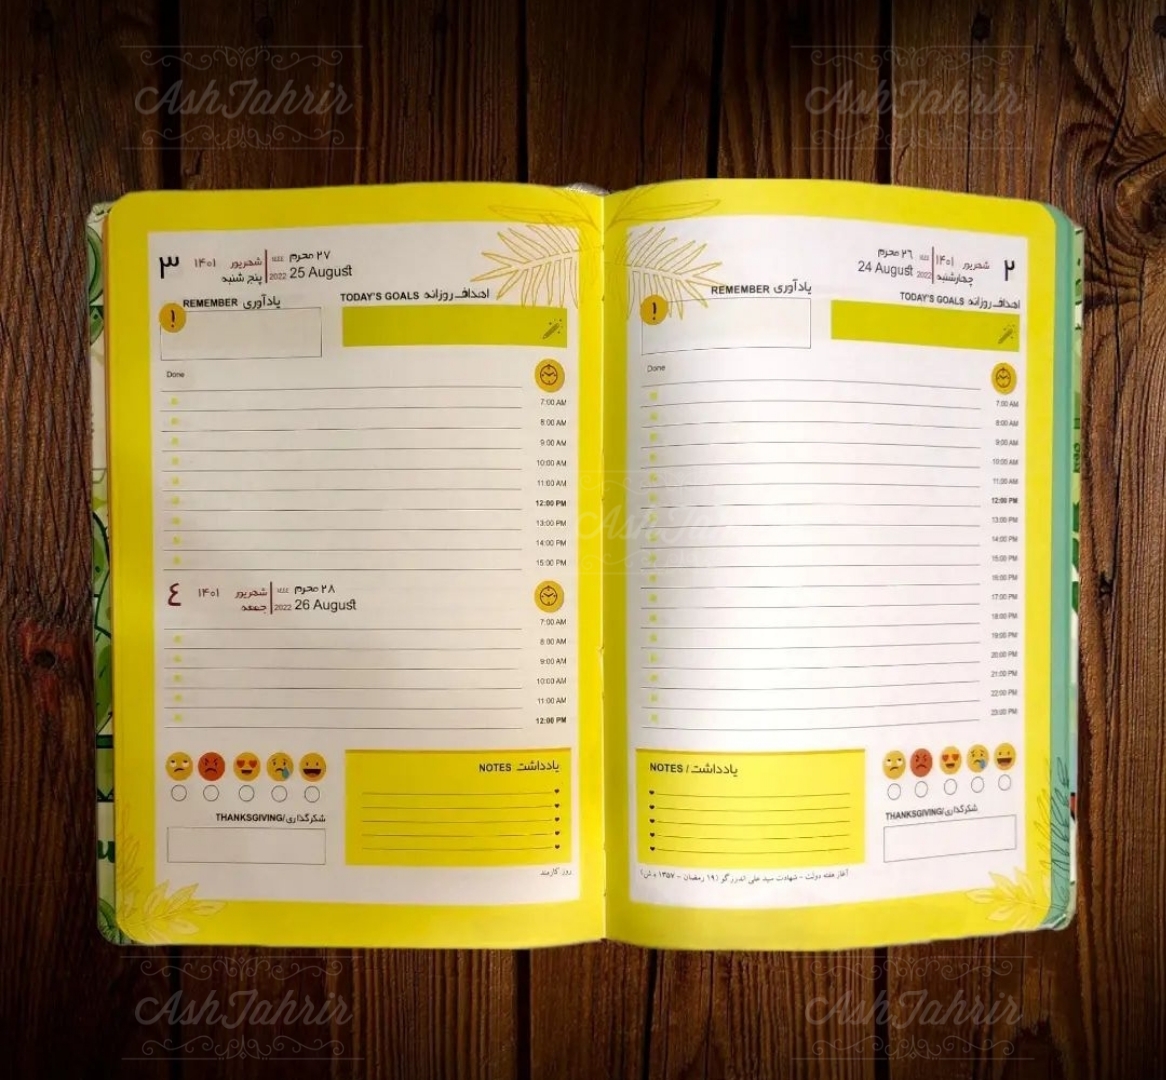 AshTahrir
AshTahrir
۲
شهریور ۱۴۰۱
چهارشنبه
۲۶ محرم ۱۴۴۴
24 August 2022
اهداف روزانه TODAY'S GOALS
یادآوری REMEMBER
!
Done
7:00 AM
8:00 AM
9:00 AM
10:00 AM
11:00 AM
12:00 PM
13:00 PM
14:00 PM
15:00 PM
16:00 PM
17:00 PM
18:00 PM
19:00 PM
20:00 PM
21:00 PM
22:00 PM
23:00 PM
NOTES / یادداشت
THANKSGIVING/شکرگذاری
آغاز هفته دولت - شهادت سید علی اندرزگو (۱۹ رمضان - ۱۳۵۷ ه ش)
۳
شهریور ۱۴۰۱
پنج شنبه
۲۷ محرم ۱۴۴۴
2022 25 August
یادآوری REMEMBER
اهداف روزانه TODAY'S GOALS
!
Done
7:00 AM
8:00 AM
9:00 AM
10:00 AM
11:00 AM
12:00 PM
13:00 PM
14:00 PM
15:00 PM
٤
شهریور ۱۴۰۱
جمعه
۲۸ محرم ۱۴۴۴
2022 26 August
7:00 AM
8:00 AM
9:00 AM
10:00 AM
11:00 AM
12:00 PM
NOTES یادداشت
THANKSGIVING/شکرگذاری
روز کارمند
AshTahrir
AshTahrir
AshTahrir